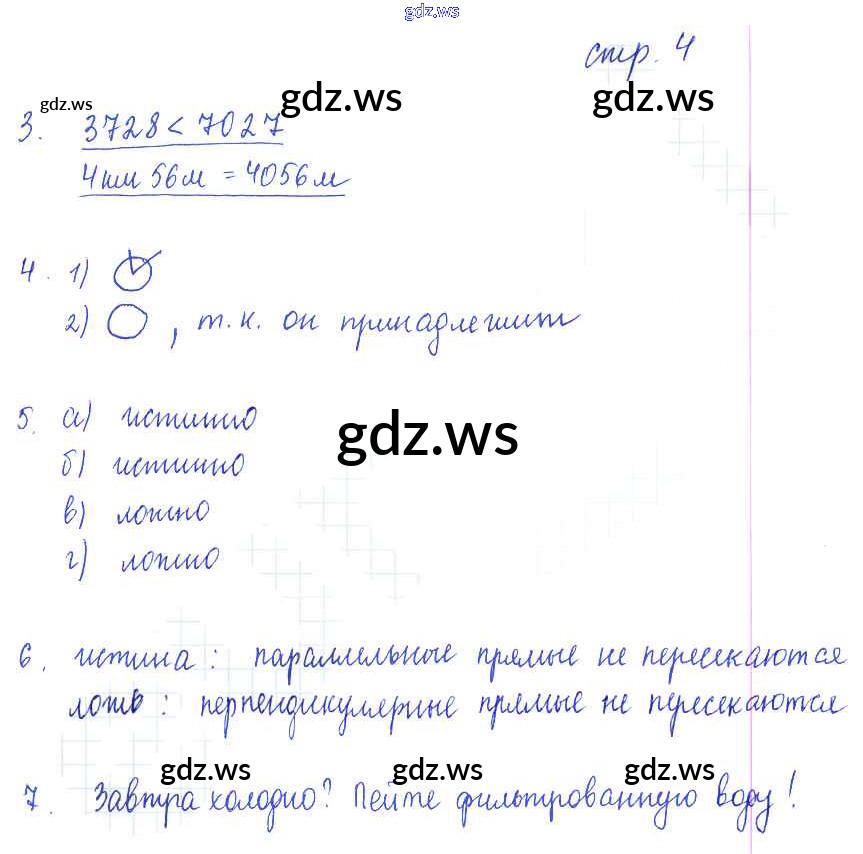 gdz.ws
стр. 4
gdz.ws gdz.ws gdz.ws
3. 3728 < 7027
4 км 56 м = 4056 м
4. 1)
2) , т.к. он принадлежит
5. а) истинно
gdz.ws
б) истинно
в) ложно
г) ложно
6. истина: параллельные прямые не пересекаются
ложь: перпендикулярные прямые не пересекаются
gdz.ws gdz.ws gdz.ws
7. Завтра холодно? Пейте фильтрованную воду!